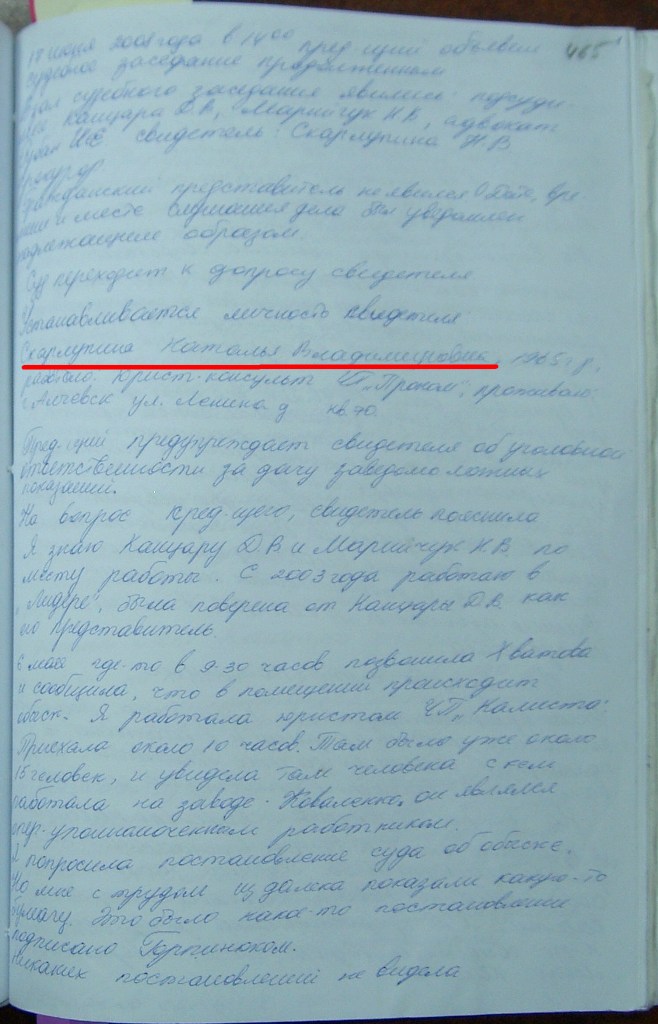 2008 года в 14 00 пред-щий объявил 465
судебное заседание продолженным
В зал судебного заседания явились: подсуди-
Канцара Д.В, Марийчук Н.В, адвокат
свидетель: Скарлупина Н.В
Прокурор
Гражданский представитель не явился О дате, вре
мени и месте слушания дела был уведомлен
надлежащим образом
Суд переходит к допросу свидетеля
Устанавливается личность свидетеля
Скарлупина Наталья Владимировна, 1965 г.р,
работаю юрист-консульт ЧП „ проживаю:
г Алчевск ул. Ленина д кв 70
Пред-щий предупреждает свидетеля об уголовной
ответственности за дачу заведомо ложных
показаний.
На вопрос пред-щего, свидетель пояснила
Я знаю Канцару Д.В и Марийчук Н.В. по
месту работы. С 2003 года работаю в
„Лидере", была поверена от Канцары Д.В. как
его представитель.
В мае где-то в 9-30 часов позвонила Хватова
и сообщила, что в помещении происходит
обыск. Я работала юристом ЧП „
Приехала около 10 часов. Там было уже около
15 человек, и увидела там человека с кем
работала на заводе - Коваленко, он являлся
опер-уполномоченным работником.
Я попросила постановление суда об обыске.
Но мне с трудом из далека показали какую-то
бумагу. Это было какое-то постановление
подписано Горпинюком.
Никаких постановлений не видела